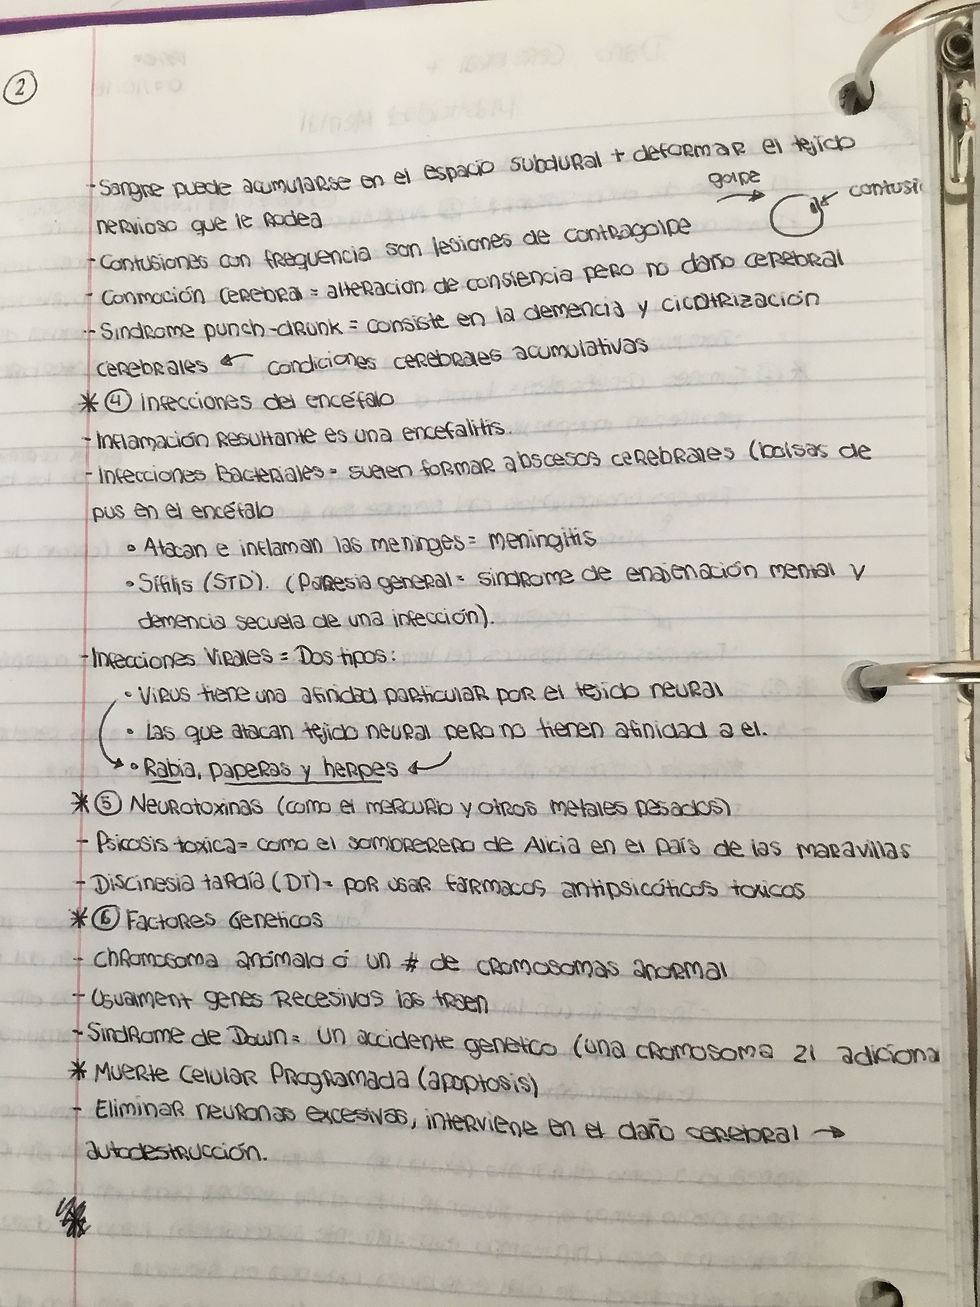 2
- Sangre puede acumularse en el espacio subdural + deformar el tejido
nervioso que le rodea
golpe
contusi
- Contusiones con frequencia son lesiones de contragolpe
- Conmoción cerebral = alteracion de consiencia pero no daño cerebral
- Sindrome punch-drunk = consiste en la demencia y cicatrización
cerebrales ← condiciones cerebrales acumulativas
* ④ Infecciones del encéfalo
- Inflamación resultante es una encefalitis.
- Infecciones Bacteriales = suelen formar abscesos cerebrales (bolsas de
pus en el encéfalo
• Atacan e inflaman las meninges = meningitis
• Sífilis (STD). (Paresia general = sindrome de enajenación mental y
demencia secuela de una infección).
- Infecciones Virales = Dos tipos:
• Virus tiene una afinidad particular por el tejido neural
• Las que atacan tejido neural pero no tienen afinidad a el.
→ • Rabia, paperas y herpes ←
* ⑤ Neurotoxinas (como el mercurio y otros metales pesados)
- Psicosis toxica = como el sombrerero de Alicia en el país de las maravillas
- Discinesia tardía (DT) = por usar fármacos antipsicóticos toxicos
* ⑥ Factores Geneticos
- Chromosoma anómalo ó un # de cromosomas anormal
- Usualment genes recesivos las traen
- Sindrome de Down = un accidente genetco (una cromosoma 21 adiciona
* Muerte Celular Programada (apoptosis)
- Eliminar neuronas excesivas, interviene en el daño cerebral →
autodestrucción.
*